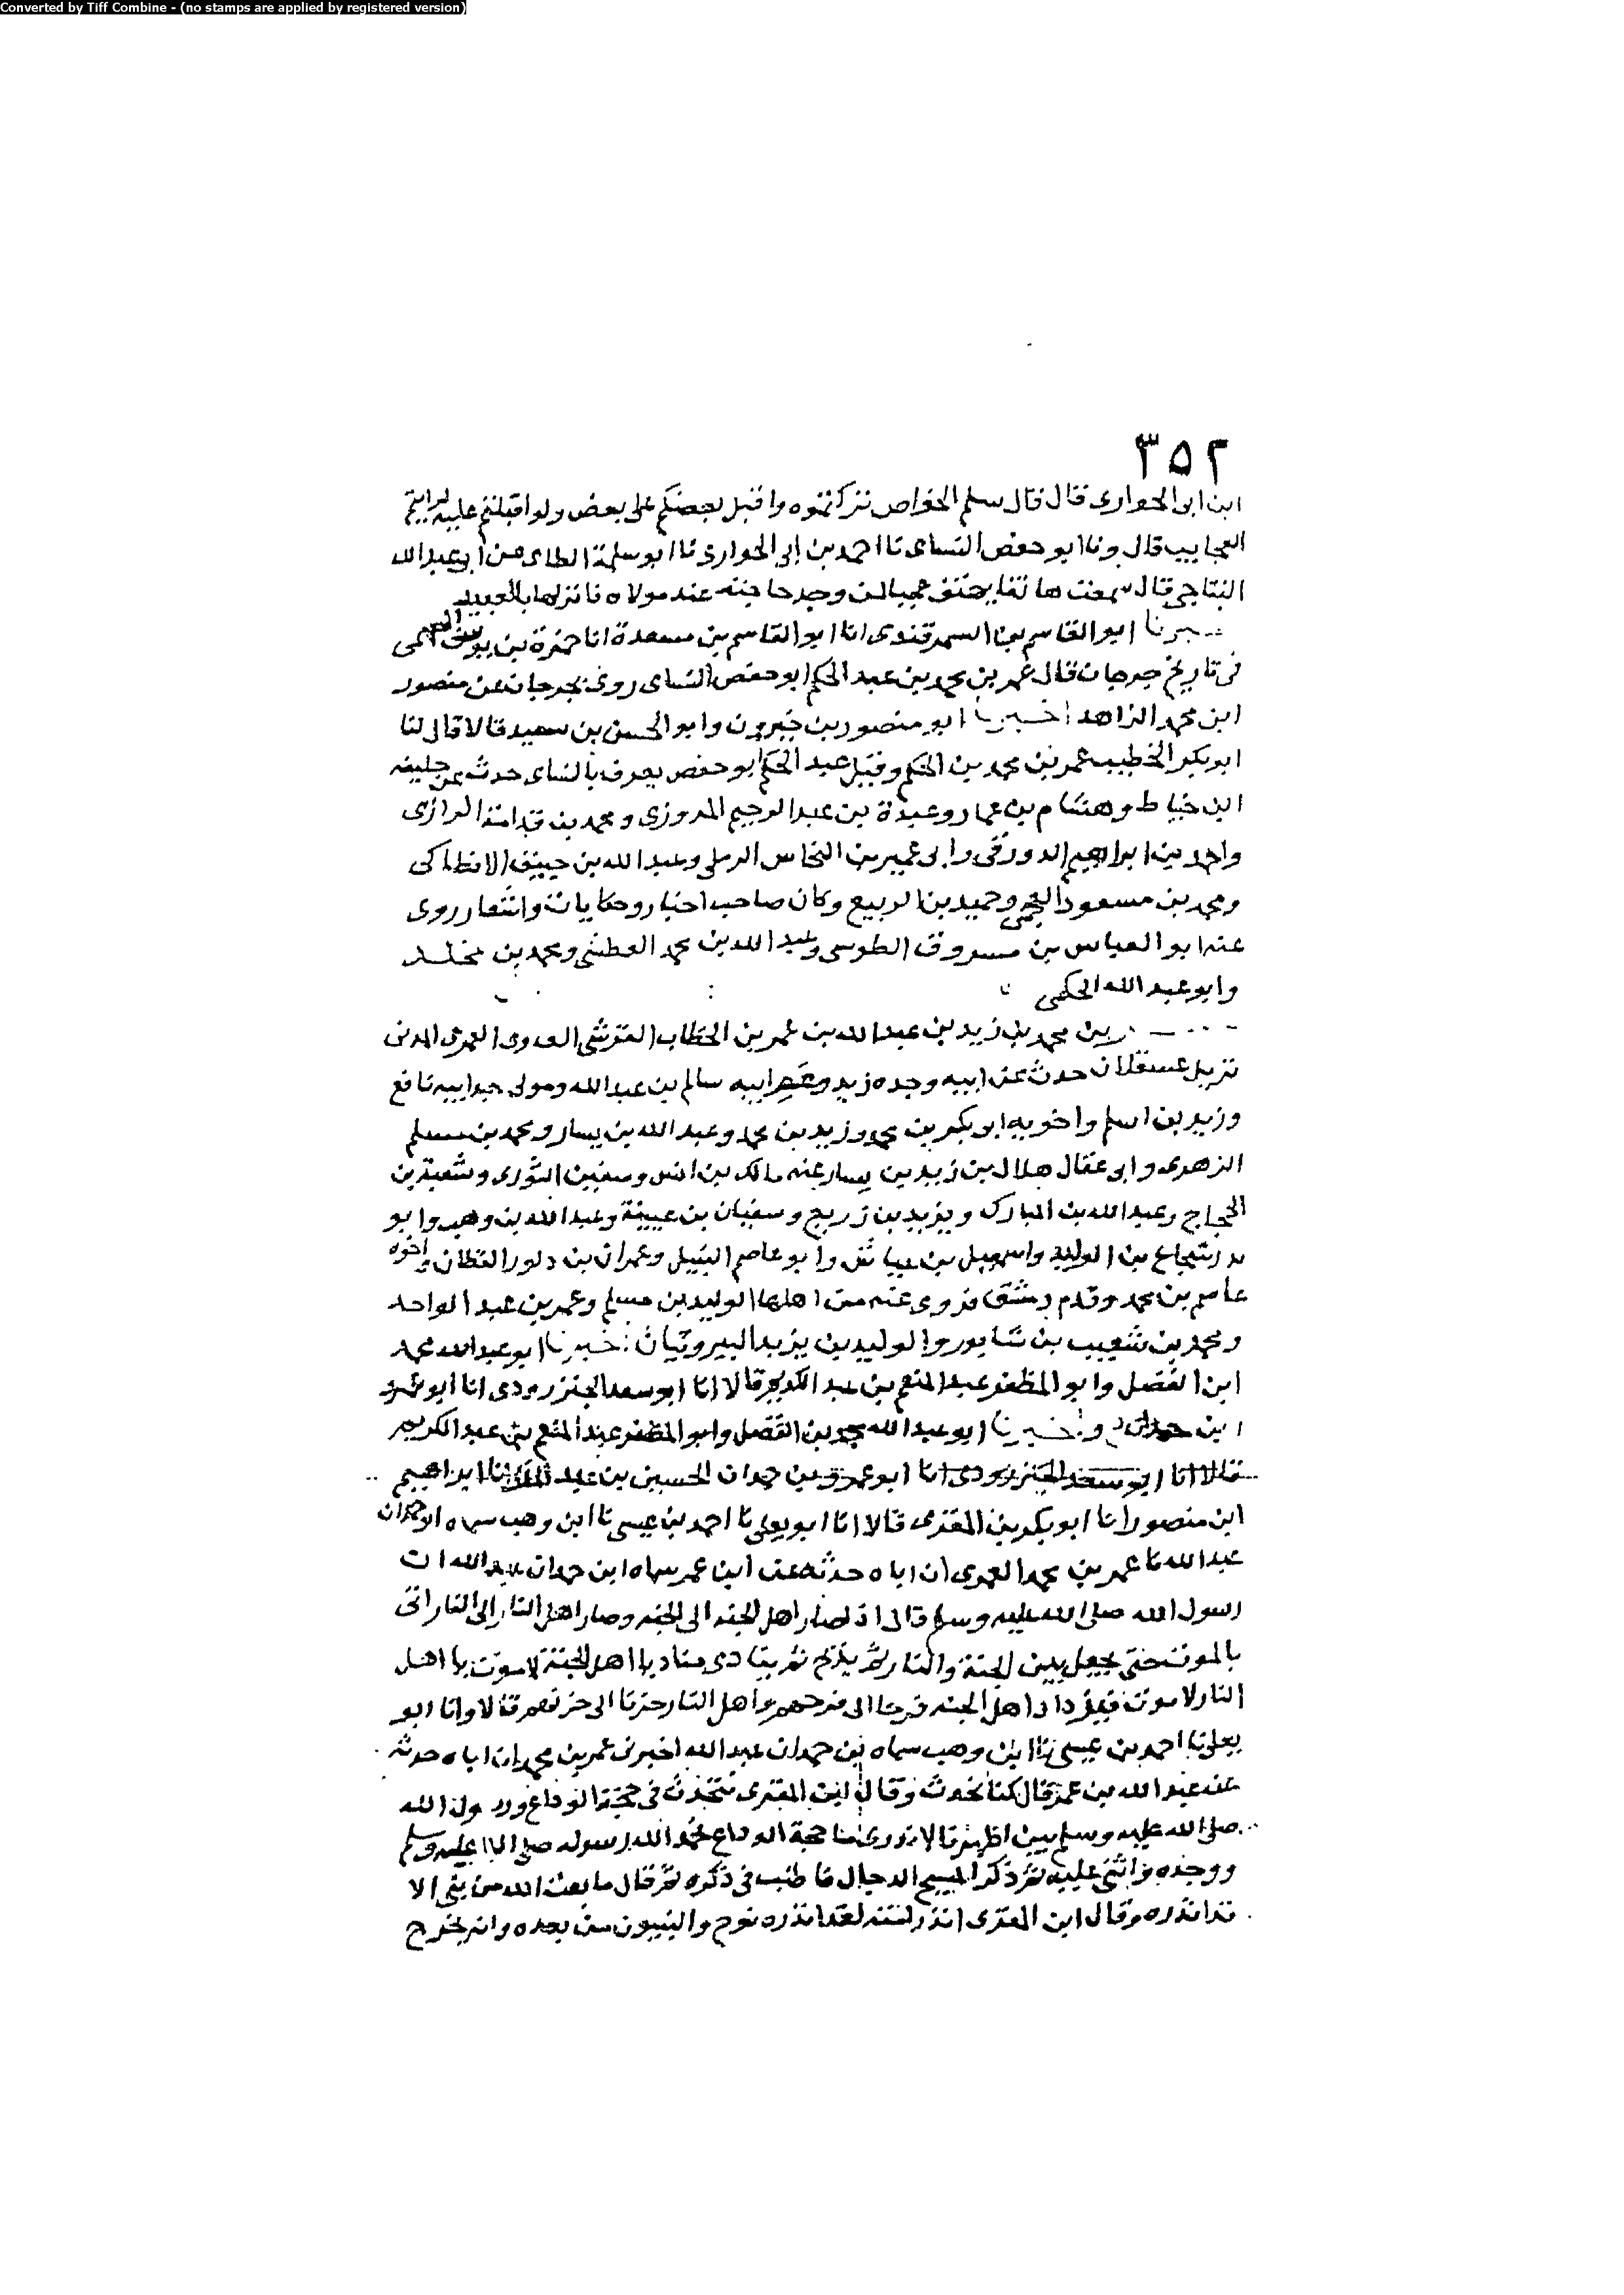 Converted by Tiff Combine - (no stamps are applied by registered version)
٣٥٢
ابن ابى الحوارى قال قال سلم الخواص تركتموه واقبل بعضكم على بعض ولو اقبلتم عليه لرايتم
العجايب قال ونا ابو حفص النساى نا احمد بن ابى الحوارى نا ابو سلمة الطاى عن ابى عبد الله
النباجى قال سمعت هاتفا يهتف عجبا لمن وجد حاجته عند مولاه فانزلها بالعبيد
ابو القاسم بن السمرقندى انا ابو القاسم بن مسعدة انا حمزة بن يوسف السهمى
فى تاريخ جرجان قال عمر بن محمد بن عبد الحكم ابو حفص النساى روى بجرجان عن منصور
ابن محمد الزاهد اخبرنا ابو منصور بن خيرون وابو الحسن بن سعيد قالا قال لنا
ابو بكر الخطيب عمر بن محمد بن الحكم وقيل عبد الحكم ابو حفص يعرف بالنساى حدث عن خليفه
ابن خياط وهشام بن عمار وعبدة بن عبد الرحيم المروزى ومحمد بن قدامة الرازى
واحمد بن ابراهيم الدورقى وابى عمير بن النخاس الرملى وعبد الله بن خبيق الانطاكى
ومحمد بن مسعود العجمى وحميد بن الربيع وكان صاحب اخبار وحكايات واشعار روى
عنه ابو العباس بن مسروق الطوسى وعبد الله بن محمد العطشى ومحمد بن مخلد
وابو عبد الله الحكمى
بن محمد بن زيد بن عبد الله بن عمر بن الخطاب القرشى العدوى العمرى المدنى
نزيل عسقلان حدث عن ابيه وجده زيد وعم ابيه سالم بن عبد الله ومولى جد ابيه نافع
وزيد بن اسلم واخويه ابو بكر بن محمد وزيد بن محمد وعبد الله بن يسار ومحمد بن مسلم
الزهرى وابى عقال هلال بن زيد بن يسار عنه مالك بن انس وسفين الثورى وشعبة بن
الحجاج وعبد الله بن المبارك ويزيد بن زريع وسفيان بن عيينة وعبد الله بن وهب وابو
بدر شجاع بن الوليد واسمعيل بن عياش وابو عاصم النبيل وعمران بن داور القطان واخوه
عاصم بن محمد وقدم دمشق فروى عنه من اهلها الوليد بن مسلم وعمر بن عبد الواحد
ومحمد بن شعيب بن شابور والوليد بن يزيد البيروتيان اخبرنا ابو عبد الله محمد
ابن الفضل وابو المظفر عبد المنعم بن عبد الكريم قالا انا ابو سعد الجنزرودى انا ابو عمرو
ابن حمدان واخبرنا ابو عبد الله محمد بن الفضل وابو المظفر عبد المنعم بن عبد الكريم
قالا انا ابو سعد الجنزرودى انا ابو عمرو بن حمدان الحسين بن عبد الملك انا ابراهيم
ابن منصور انا ابو بكر بن المقرى قالا انا ابو يعلى نا احمد بن عيسى نا ابن وهب سماه ابن حمدان
عبد الله نا عمر بن محمد العمرى ان اباه حدثه عن ابن عمر سماه ابن حمدان عبد الله ان
رسول الله صلى الله عليه وسلم قال اذا صار اهل الجنه الى الجنه وصار اهل النار الى النار اتى
بالموت حتى يجعل بين الجنة والنار ثم يذبح ثم ينادى مناد يا اهل الجنة لا موت يا اهل
النار لا موت فيزداد اهل الجنه فرحا الى فرحهم واهل النار حزنا الى حزنهم قالا وانا ابو
يعلى نا احمد بن عيسى نا ابن وهب سماه بن حمدان عبد الله اخبرنى عمر بن محمد ان اباه حدثه
عن عبد الله بن عمر قال كنا نحدث وقال ابن المقرى نتحدث فى حجة الوداع ورسول الله
صلى الله عليه وسلم بين اظهرنا لا ندرى ما حجة الوداع فحمد الله رسوله صلى الله عليه وسلم
ووحده واثنى عليه ثم ذكر المسيح الدجال فاطنب فى ذكره ثم قال ما بعث الله من نبى الا
قد انذره وقال ابن المقرى انذر امته لقد انذره نوح والنبيون من بعده وانه يخرج